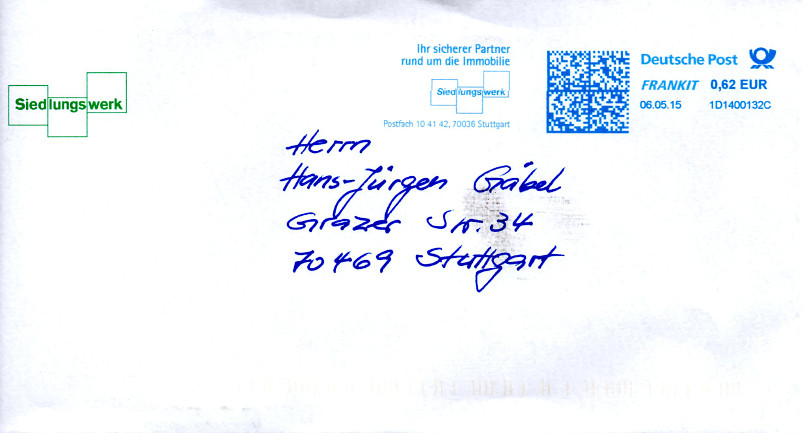 Siedlungswerk
Ihr sicherer Partner
rund um die Immobilie
Siedlungswerk
Postfach 10 41 42, 70036 Stuttgart
Deutsche Post
FRANKIT 0,62 EUR
06.05.15 1D1400132C
Herrn
Hans-Jürgen Gräbel
Grazer Str. 34
70469 Stuttgart